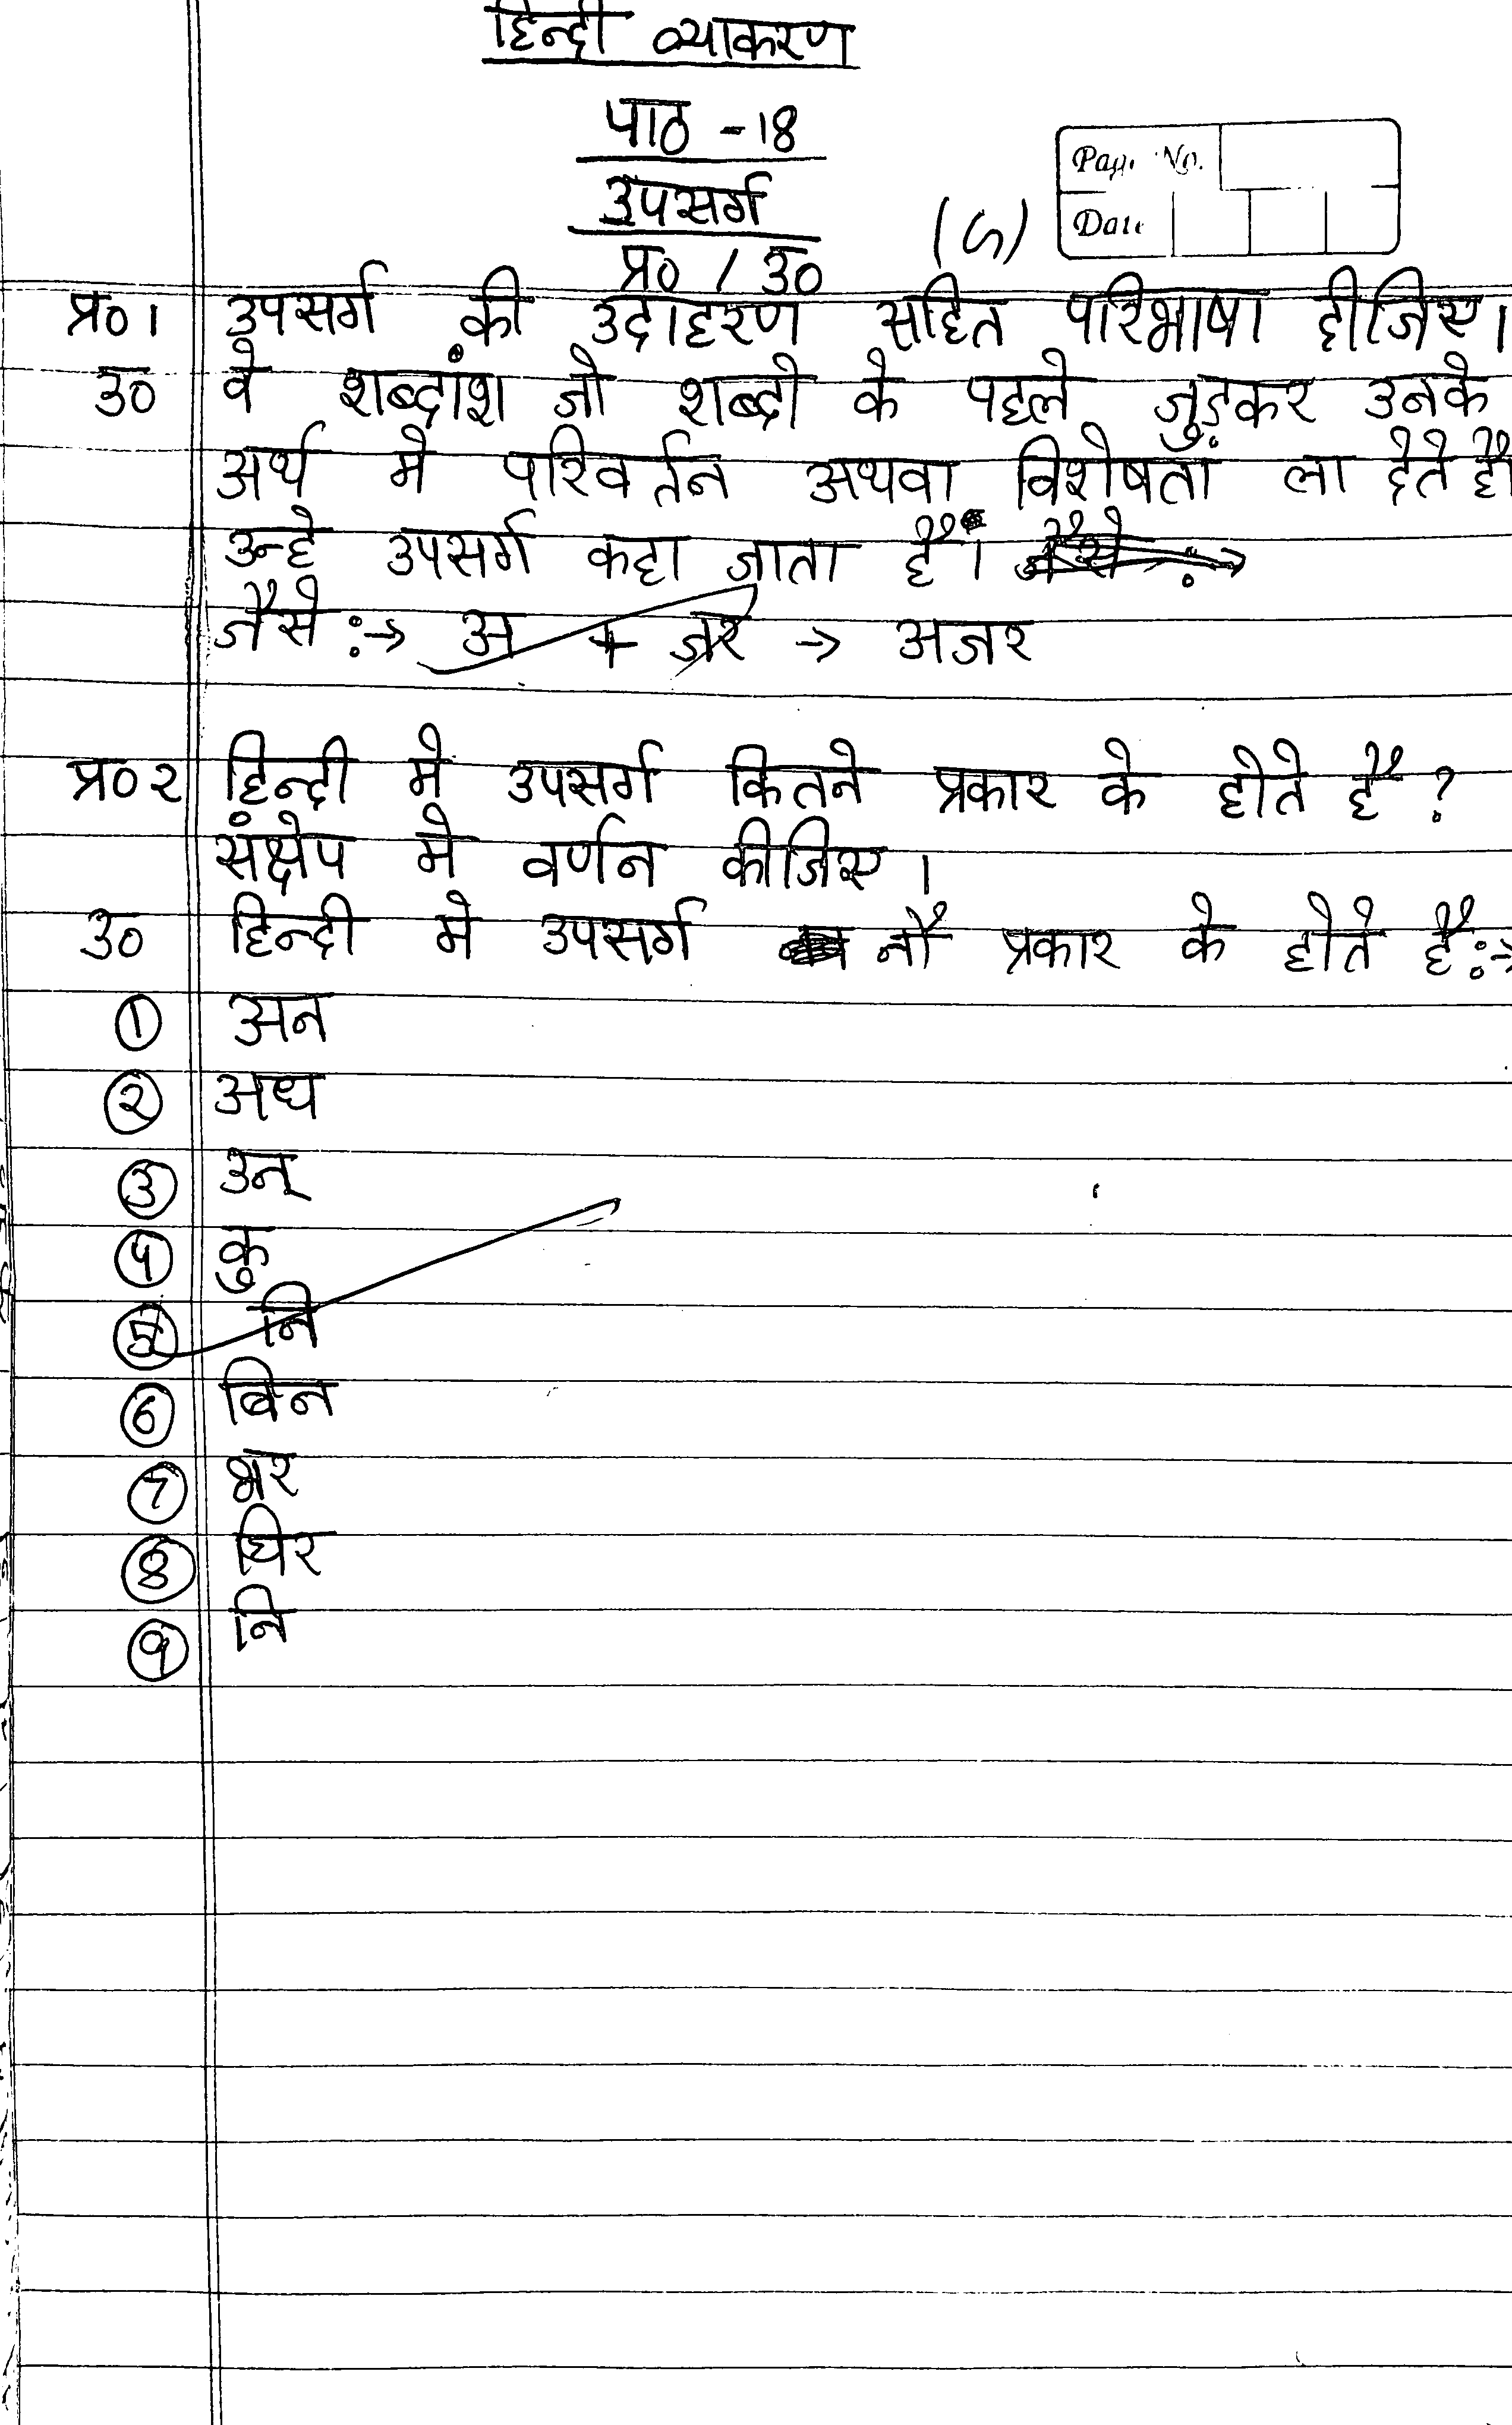 हिन्दी व्याकरण
पाठ -18
उपसर्ग
Page No.
Date
प्र० / उ०
प्र०1 उपसर्ग की उदाहरण सहित परिभाषा दीजिए।
उ० वे शब्दांश जो शब्दो के पहले जुड़कर उनके
अर्थ मे परिवर्तन अथवा विशेषतां ला देते है
उन्हे उपसर्ग कहा जाता है।
जैसे :→ अ + जर → अजर
प्र०२ हिन्दी मे उपसर्ग कितने प्रकार के होते है ?
संक्षेप मे वर्णन कीजिए ।
उ० हिन्दी मे उपसर्ग नौ प्रकार के होते है :→
① अन
② अध
③ उन्
④ कु
⑤ नि
⑥ बिन
⑦ भर
⑧ घिर
⑨ नि